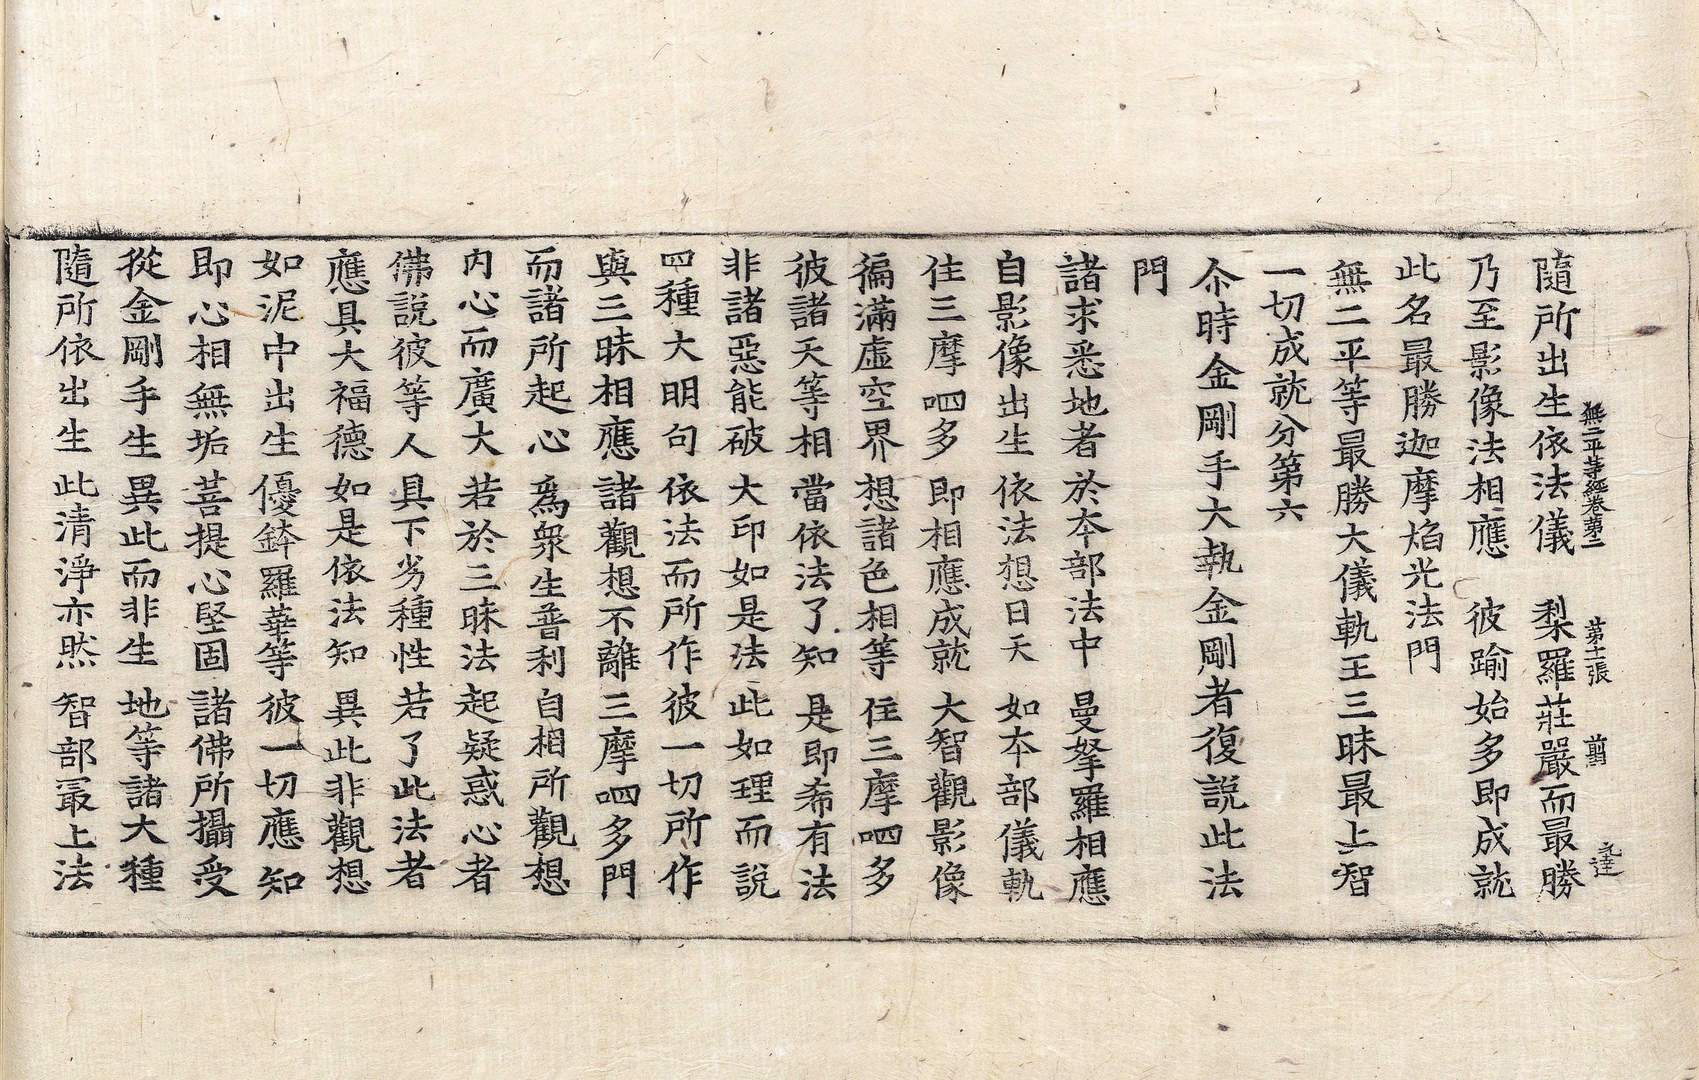 無二平等經卷第二 第十二張 翦 元達
隨所出生依法儀 梨羅莊嚴而最勝
乃至影像法相應 彼踰始多即成就
此名最勝迦摩焰光法門
無二平等最勝大儀軌王三昧最上智
一切成就分第六
尒時金剛手大執金剛者復說此法
門
諸求悉地者於本部法中 曼拏羅相應
自影像出生 依法想日天 如本部儀軌
住三摩呬多 即相應成就 大智觀影像
徧滿虛空界 想諸色相等 住三摩呬多
彼諸天等相 當依法了知 是即希有法
非諸惡能破 大印如是法 此如理而說
四種大明句 依法而所作 彼一切所作
與三昧相應 諸觀想不離 三摩呬多門
而諸所起心 爲衆生普利 自相所觀想
內心而廣大 若於三昧法 起疑惑心者
佛說彼等人 具下劣種性 若了此法者
應具大福德 如是依法知 異此非觀想
如泥中出生 優鉢羅華等 彼一切應知
即心相無垢 菩提心堅固 諸佛所攝受
從金剛手生 異此而非生 地等諸大種
隨所依出生 此清淨亦然 智部最上法